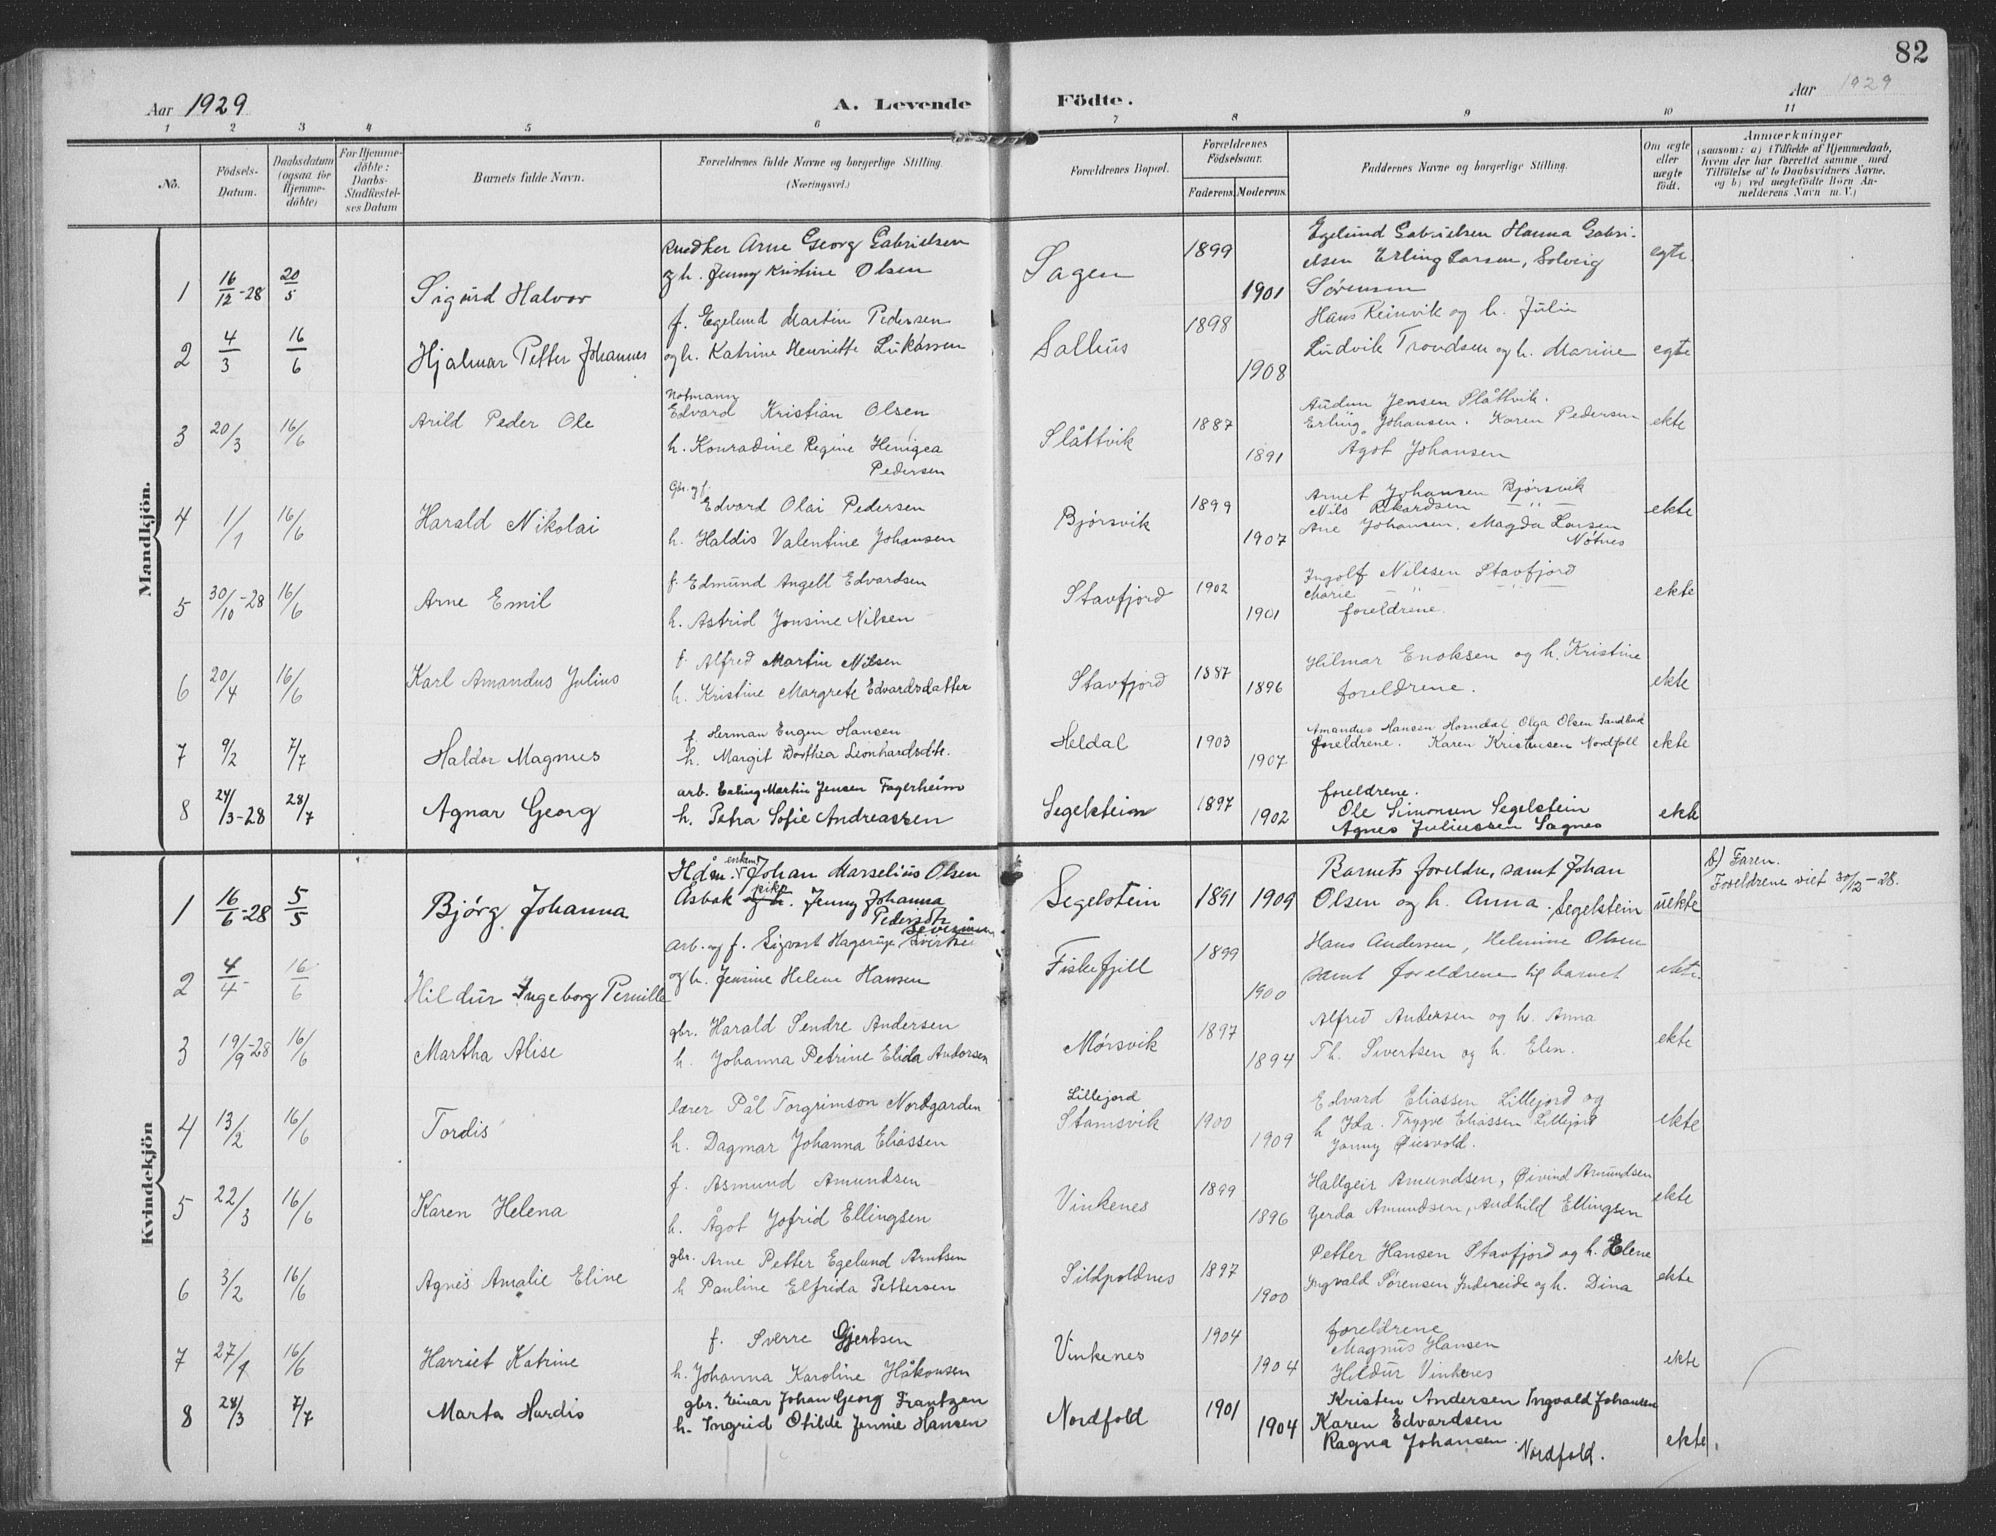 82
Aar 1929
A. Levende Födte.
Aar 1929
1 2 3 4 5 6 7 8 9 10 11
No.
Födsels-Datum.
Daabsdatum (ogsaa for Hjemme-döbte)
For Hjemme-döbte: Daabs-Stadfæstel-ses Datum
Barnets fulde Navn.
Forældrenes fulde Navne og borgerlige Stilling.
(Næringsvei.)
Forældrenes Bopæl.
Forældrenes Fødselsaar.
Faderens. Moderens.
Faddernes Navne og borgerlige Stilling.
Om ægte eller uægte födt.
Anmærkninger
(saasom: a) i Tilfælde af Hjemmedaab,
hvem der har forrettet samme, med
Tilföielse af to Daabsvidners Navne,
og b) ved uægtefödte Börn An-
melderens Navn m. V.)
Mandkjön.
1 16/12-28 20/5 Sigurd Halvor
snedker Arne Georg Gabrielsen
og h. Jenny Kristine Olsen
Sagen 1899 1901
Egelund Gabrielsen Hanna Gabri-
elsen Erling Larsen, Solveig
Sørensen
egte
2 4/3 16/6 Hjalmar Petter Johannes
f. Egelund Martin Pedersen
og h. Katrine Henriette Lukassen
Salhus 1898 1908
Hans Reinvik og h. Julie
Ludvik Trondsen og h. Marine
egte
3 20/3 16/6 Arild Peder Ole
Notmann
Edvard Kristian Olsen
h. Konradine Regine
Pedersen
Slåttvik 1887 1891
Audun Jensen Slåttvik.
Erling Johansen. Karen Pedersen
Agot Johansen
ekte
4 1/1 16/6 Harald Nikolai
Gbr. og f.
Edvard Olai Pedersen
h. Haldis Valentine Johansen
Bjørsvik 1899 1907
Arnet Johansen Bjørsvik
Nils Rikardsen — " —
Ane Johansen, Magda Larsen
Nøtnes
ekte
5 30/10-28 16/6 Arne Emil
f. Edmund Angell Edvardsen
h. Astrid Jonsine Nilsen
Stavfjord 1902 1901
Ingolf Nilssen Stavfjord
Marie — " —
foreldrene.
ekte
6 20/4 16/6 Karl Amandus Julius
f. Alfred Martin Nilsen
h. Kristine Margrete Edvardsdatter
Stavfjord 1887 1896
Hilmar Enoksen og h. Kristine
foreldrene.
ekte
7 9/2 7/7 Haldor Magnus
f. Herman Eugen Hansen
h. Margit Dorthea Leonhardsdtr.
Heldal 1903 1907
Amandus Hansen Horndal, Olga Olsen
foreldrene. Karen Kristensen Nordfoll
ekte
8 24/3-28 28/7 Agnar Georg
arb. Erling Martin Jensen Fagerheim
h. Petra Sofie Andreassen
Segelstein 1897 1902
foreldrene.
Ole Simonsen Segelstein
Agnes Juliussen Sagnes
ekte
Kvindekjön
1 16/6-28 5/5 Bjørg Johanna
enkem.
Hdm. Johan Marselius Olsen
Åsbak pike Jenny Johanna
Pedersdtr
Segelstein 1891 1909
Barnets foreldre, samt Johan
Olsen og h. Anna. Segelstein
uekte
b) Faren.
Foreldrene viet 30/12-28.
2 4/4 16/6 Hildur Ingeborg Pernille
arb. og f. Sigvart
og h. Jensine Helene Hansen
Fiskefjell 1899 1900
Hans Andersen, Helmine Olsen
samt foreldrene til barnet
ekte
3 19/9-28 16/6 Martha Alise
gbr. Harald Sendre Andersen
h. Johanna Petrine Elida Andorsen
Mørsvik 1897 1894
Alfred Andersen og h. Anna
Th. Sivertsen og h. Elen.
ekte
4 13/2 16/6 Tordis
lærer Pål Torgrimson Nordgarden
h. Dagmar Johanna Eliassen
Lillejord
Stamsvik 1900 1909
Edvard Eliassen Lillejord og
h Ida. Trygve Eliassen Lillejord
Jenny
ekte
5 22/3 16/6 Karen Helena
f. Asmund Amundsen
h. Ågot Jofrid Ellingsen
Vinkenes 1899 1896
Hallgeir Amundsen, Øivind Amundsen
Gerda Amundsen, Audhild Ellingsen
ekte
6 3/2 16/6 Agnes Amalie Eline
gbr. Arne Petter Egelund Arntsen
h Pauline Elfrida Pettersen
Sildpoldnes 1897 1900
Petter Hansen Stavfjord og h. Elene
Ingvald Sørensen Indereide og h. Dina
ekte
7 27/4 16/6 Harriet Katrine
f. Sverre Gjertsen
h. Johanna Karoline Håkonsen
Vinkenes 1904 1904
foreldrene
Magnus Hansen
Hildur Vinkenes
ekte
8 28/3 7/7 Marta Hardis
gbr. Einar Johan Georg Frantzen
h. Ingrid Otilde Jennie Hansen
Nordfold 1901 1904
Kristen Andersen Ingvald Johansen
Karen Edvardsen
Ragna Johansen. Nordfold.
ekte.